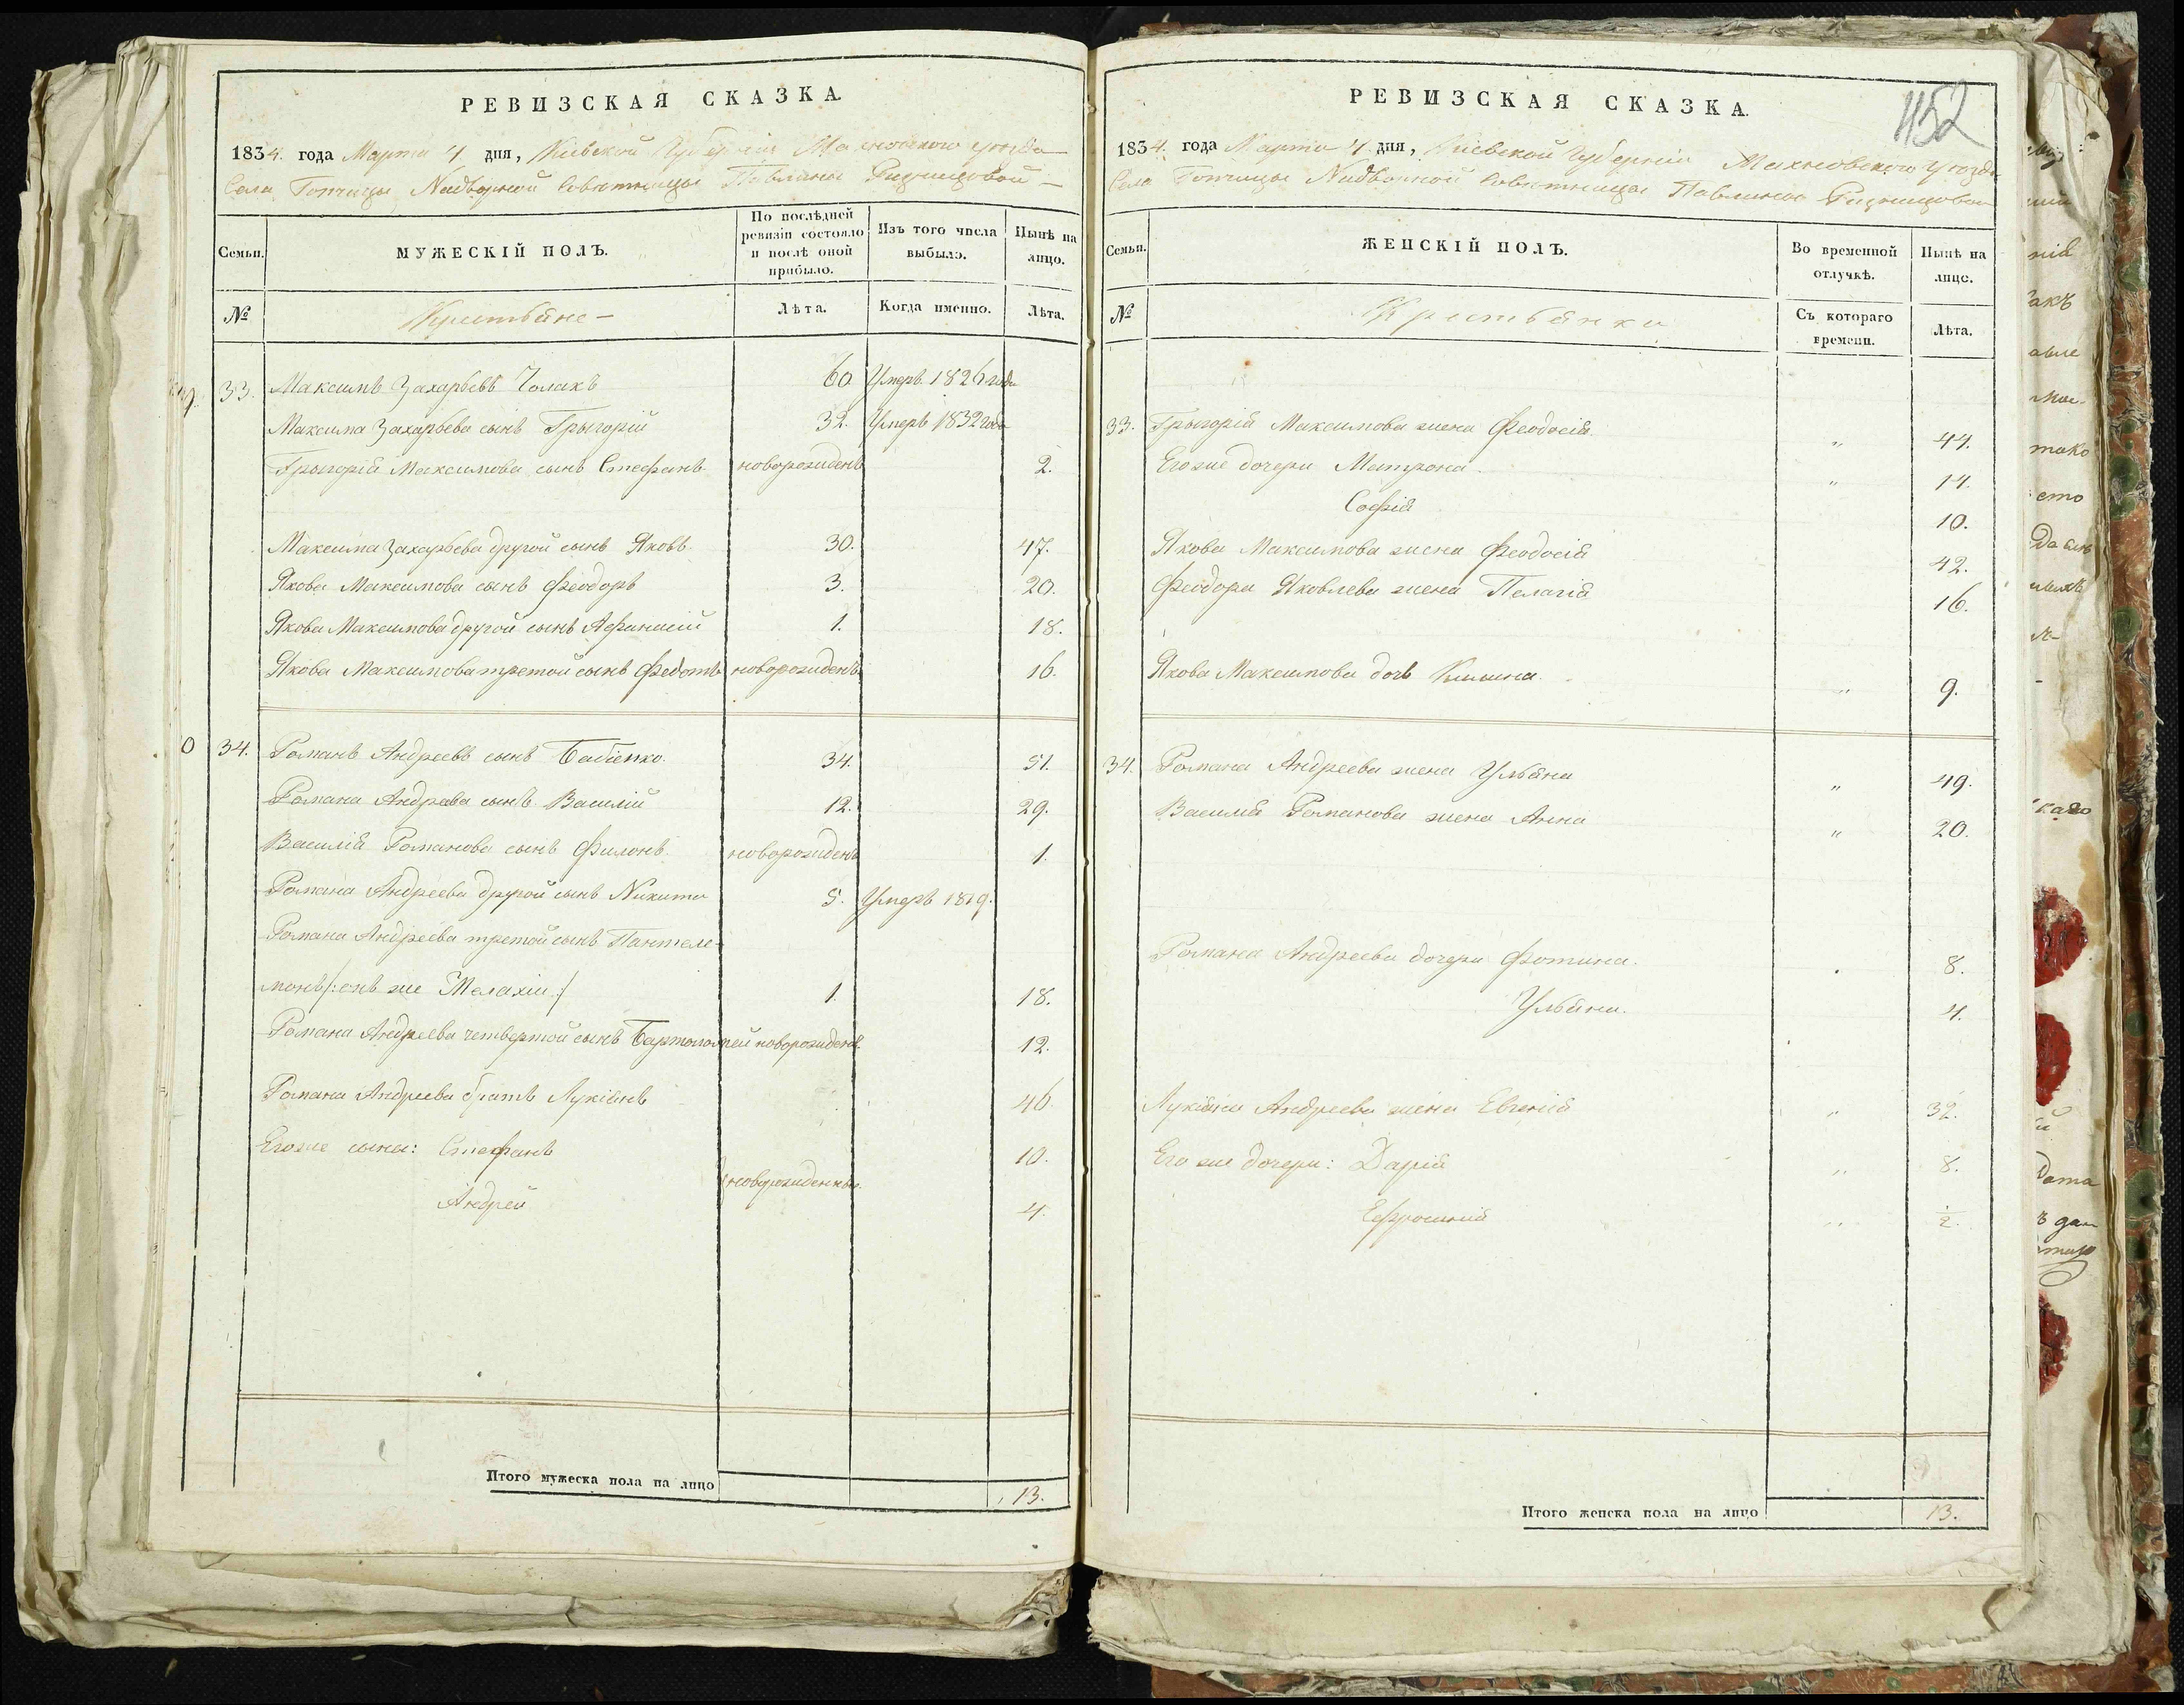 РЕВИЗСКАЯ СКАЗКА.
1834. года Марта 4 дня, Киевской Губернии Махновского уезда
Села Топчицы Надворной Советницы Павлины
Семьи.
МУЖЕСКІЙ ПОЛЪ.
По послѣдней ревизіи состояло и послѣ оной прибыло.
Изъ того числа выбыло.
Нынѣ на лицо.
№
Крестьяне
Лѣта.
Когда именно.
Лѣта.
33. Максимъ Захарьевъ Чолакъ 60 Умеръ 1826 года
Максима Захарьева сынъ Григорій 32. Умеръ 1832 года
Григорія Максимова сынъ Стефанъ новорожденъ 2.
Максима Захарьева другой сынъ Яковъ 30. 47.
Якова Максимова сынъ Феодоръ 3. 20.
Якова Максимова другой сынъ Афанасій 1. 18.
Якова Максимова третой сынъ Федотъ новорожденъ 16.
0 34. Романъ Андреевъ сынъ Бабіенко. 34. 51.
Романа Андреева сынъ Василій 12. 29.
Василія Романова сынъ Филонъ. новорожденъ 1.
Романа Андреева другой сынъ Никита 5. Умеръ 1819.
Романа Андреева третой сынъ Пантеле-
монъ /: онъ же Мелахіи :/ 1. 18.
Романа Андреева четвертой сынъ Вартоломей новорожденъ. 12.
Романа Андреева братъ Лукіянъ 46.
Егоже сына: Стефанъ 10.
новорожденны.
Андрей 4.
Итого мужеска пола на лицо 13.
РЕВИЗСКАЯ СКАЗКА.
452
1834. года Марта 4. дня, Киевской Губерніи Махновского уезда
Села Топчицы Надворной Советницы Павлины
Семьи.
ЖЕНСКІЙ ПОЛЪ.
Во временной отлучкѣ.
Нынѣ на лицо.
№
Крестьянки
Съ котораго времени.
Лѣта.
33. Григорія Максимова жена Феодосія. " 44.
Егоже дочери Матрона. " 14.
Софія 10.
Якова Максимова жена Феодосія 42.
Феодора Яковлева жена Пелагія 16.
Якова Максимова дочь " 9.
34. Романа Андреева жена Ульяна " 49.
Василія Романова жена Анна " 20.
Романа Андреева дочери Фотина. 8.
Ульяна. 4.
Лукіяна Андреева жена Евгенія " 32.
Его же дочери: Дарія " 8.
Ефросинія " 1/2.
Итого женска пола на лицо 13.